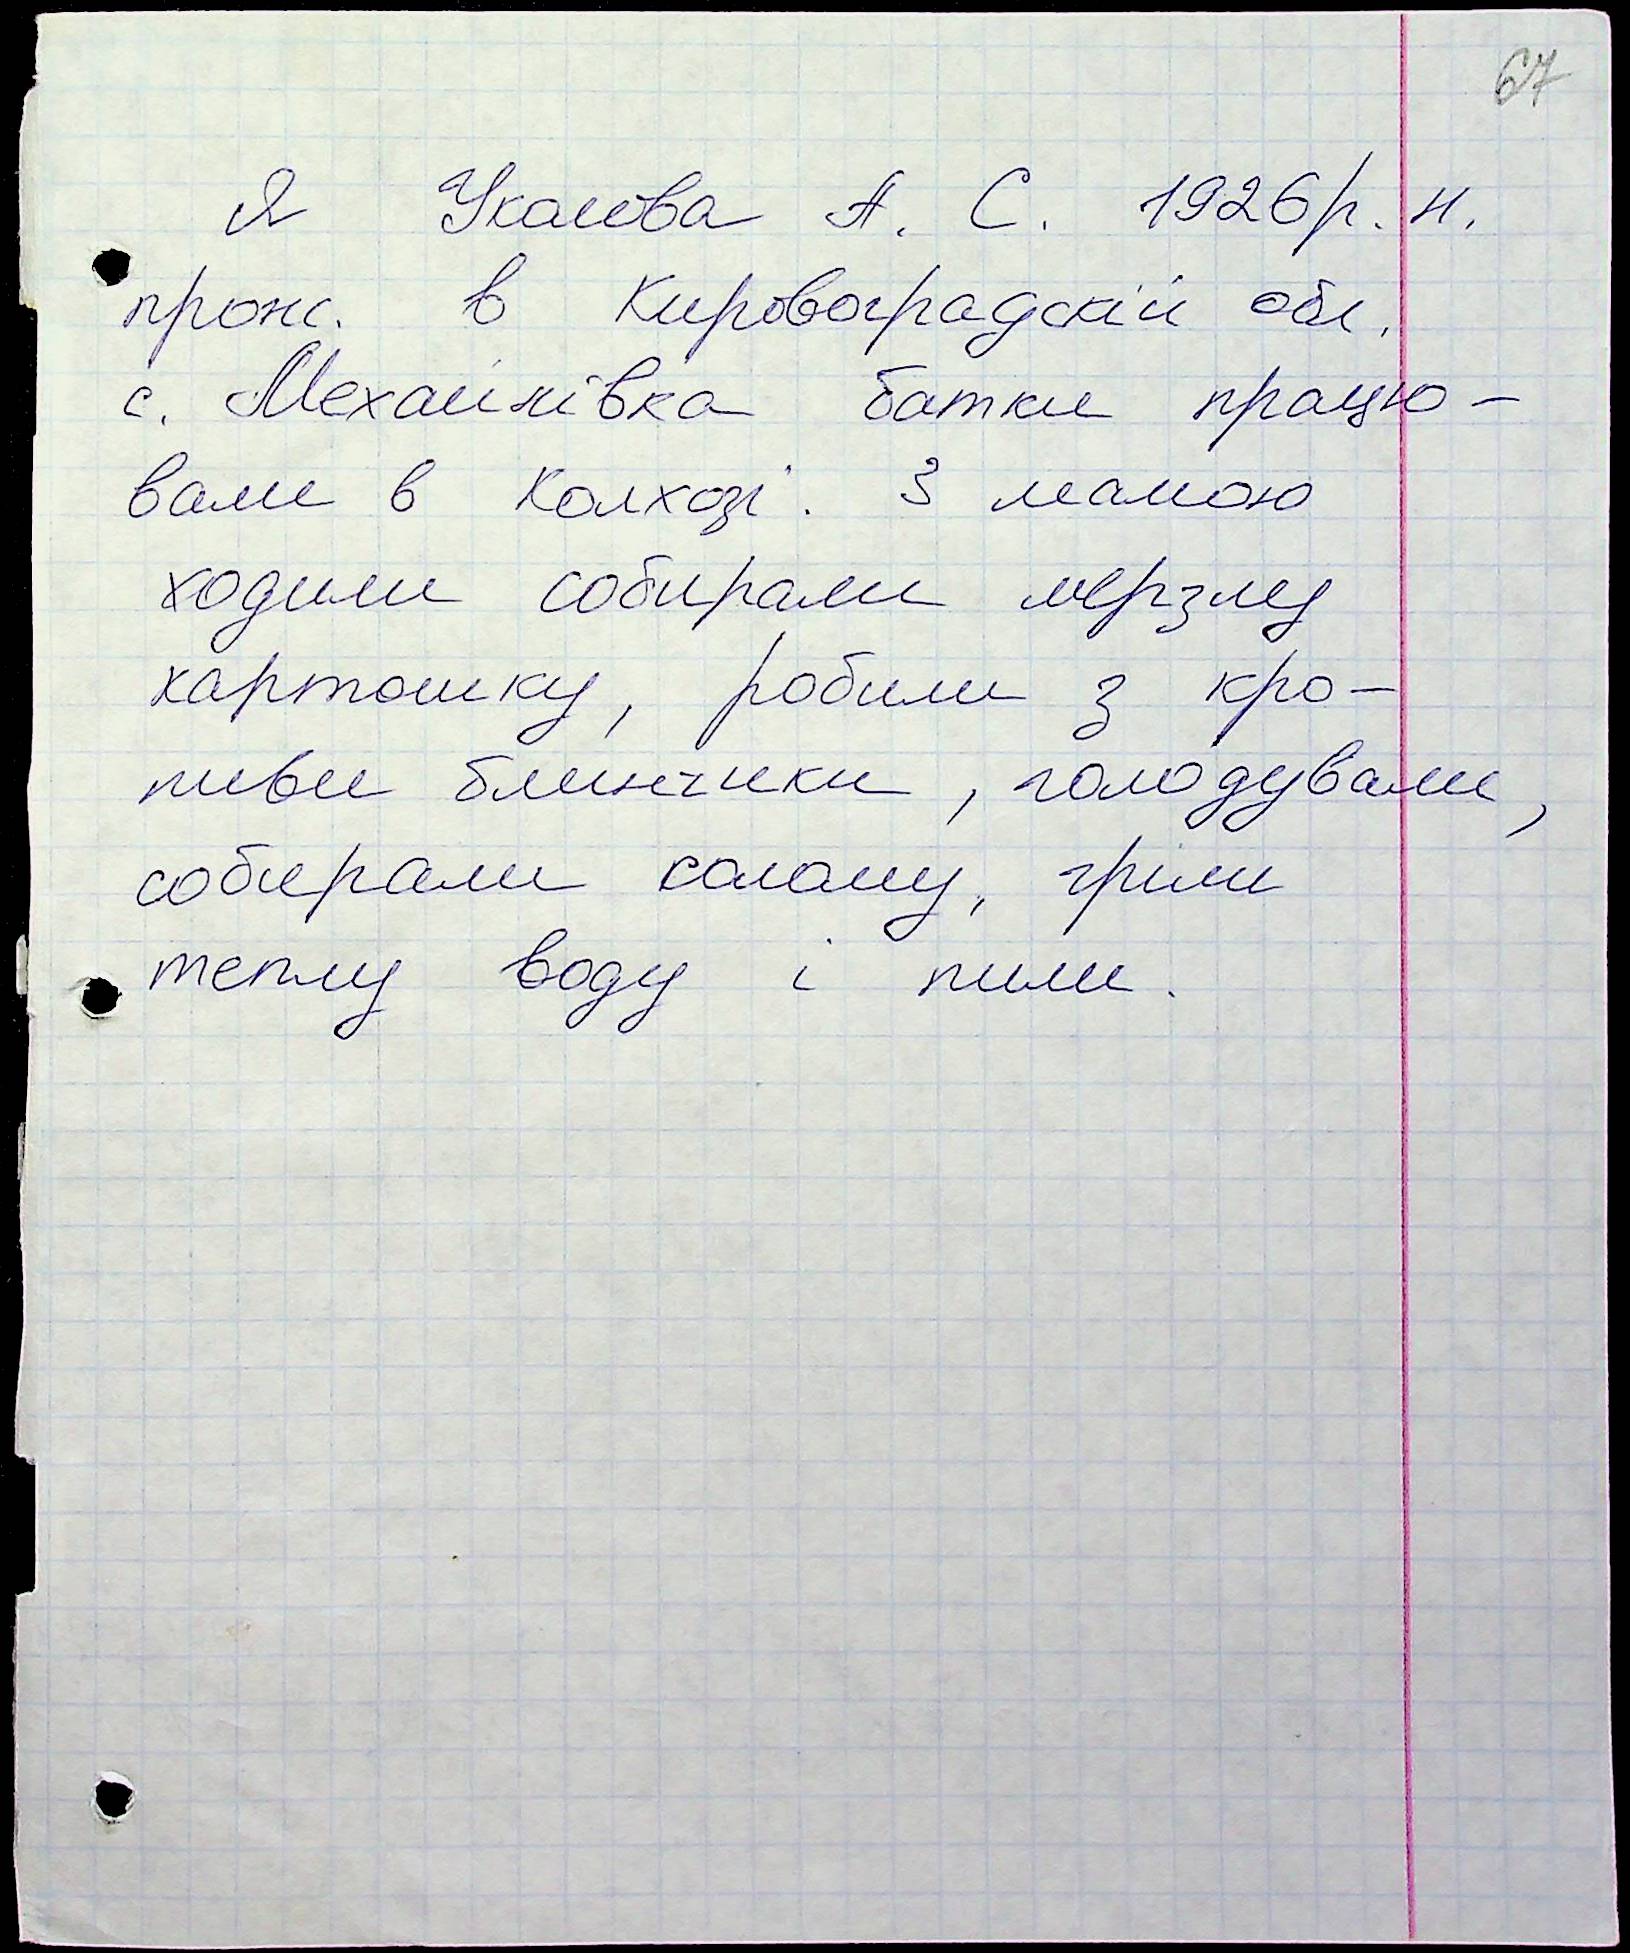 67
Я Укалова А. С. 1926р. н.
прож. в Кировоградскій обл.
с. Механівка батки працю-
вали в колхозі. З мамою
ходили собирали мерзлу
картошку, робили з кро-
пиви блинчики, голодували,
собирали солому, гріли
теплу воду і пили.